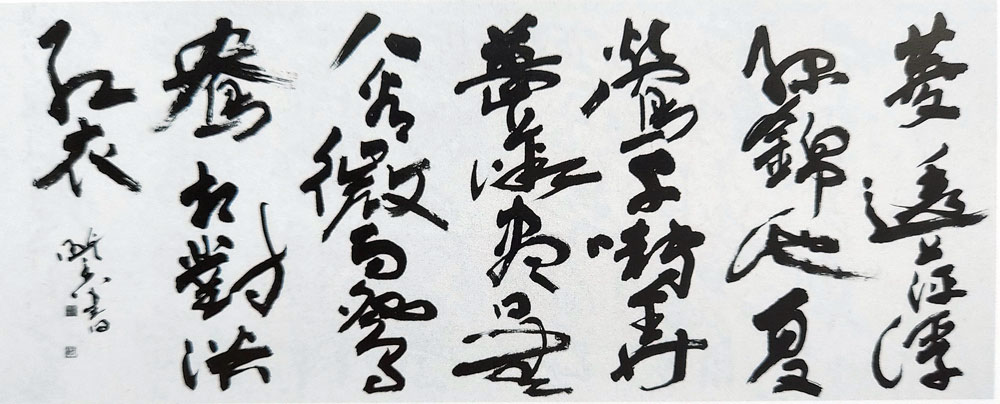 菱透萍浮
綠錦池夏
鶯千囀弄
薔薇盡日無
人看微雨鴛
鴦相對浴
紅衣